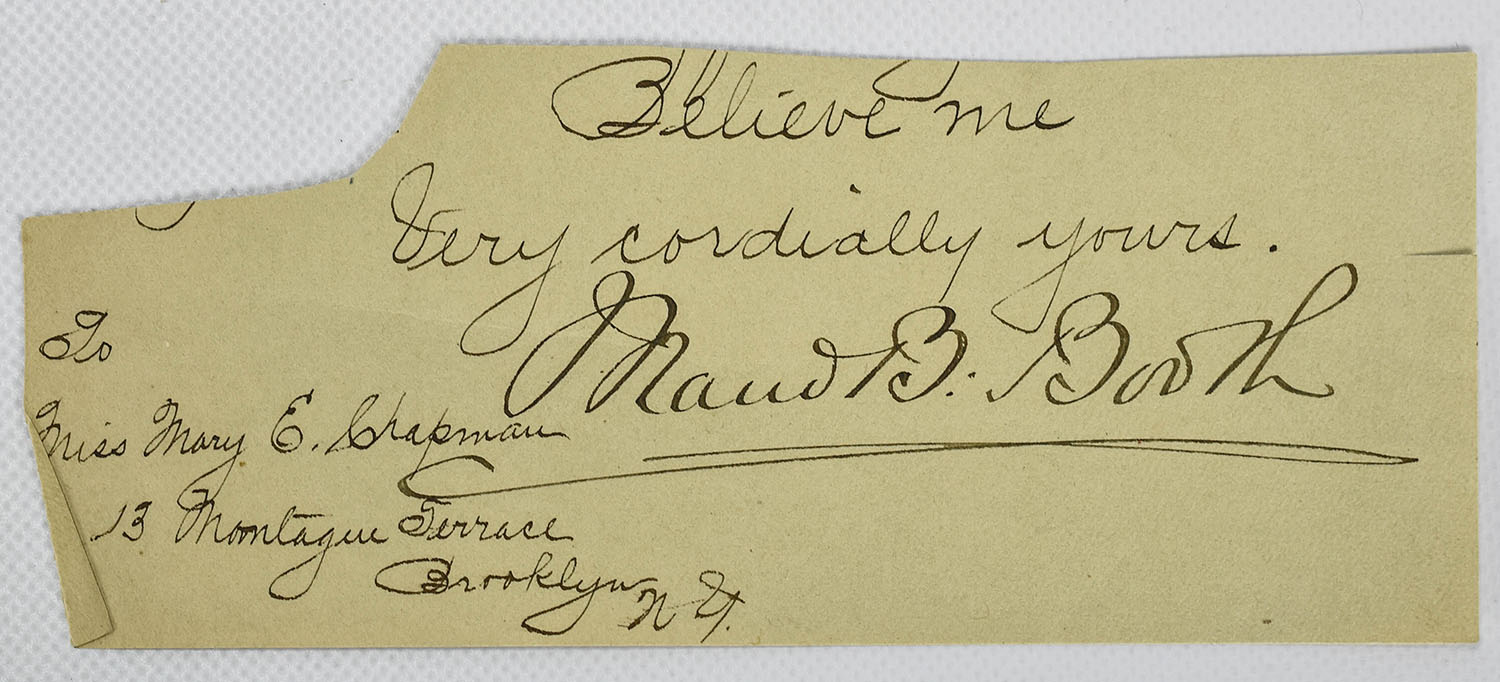 Believe me
Very cordially yours.
Maud B. Booth
To
Miss Mary E. Chapman
13 Montague Terrace
Brooklyn
N Y.